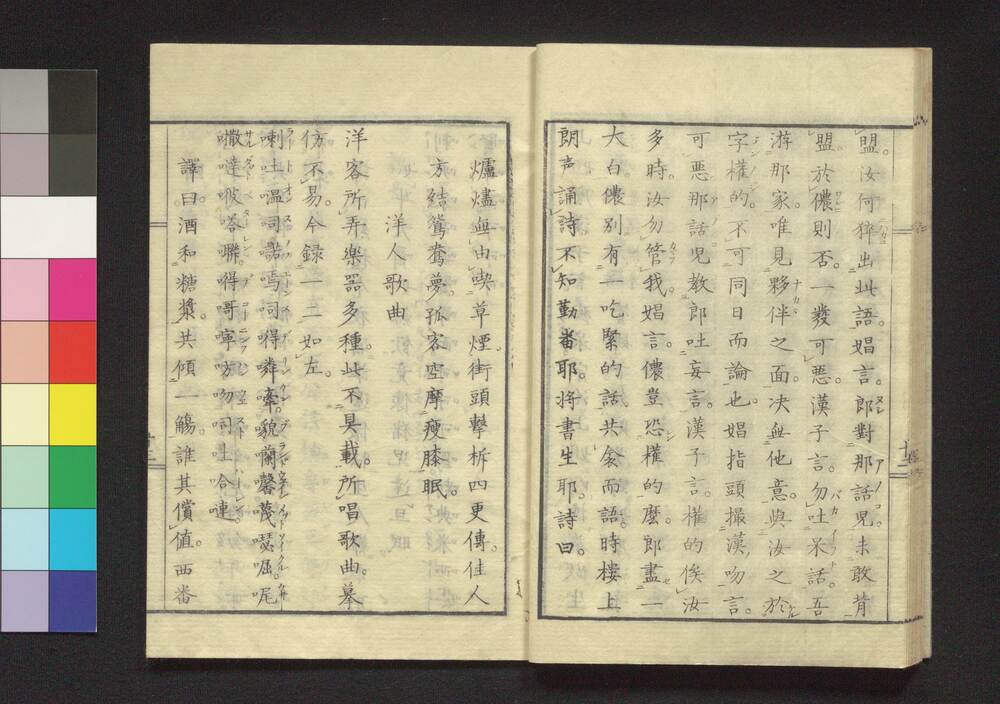 盟。汝何猝出此語。娼言。郎對那話児未敢背
盟。於儂則否。一發可悪。漢子言。勿吐呆話。吾
游那家。唯見夥伴之面。决無他意。與汝之於
字權的。不可同日而論也。娼指頭撮漢吻言。
可悪那話児教郎吐妄言。漢子言。權的俟汝
多時。汝勿管我。娼言。儂豈恐權的麼。郎盡一
大白。儂別有一吃緊的話。共衾而語。時楼上
朗声誦詩。不知勤番耶。将書生耶。詩曰。
爐燼無由喫草煙。街頭撃柝四更傳。佳人
方結鴛鴦夢。孤客空摩瘦膝眠。
洋人歌曲
洋客所弄樂器多種。此不具載。所唱歌曲。摹
仿不易。今録一二如左。
喇土嗢司諾焉司得粦牽。貌蘭馨蔑瑟崛尾
撒噠呅嗒聯。得哥寧吻司土哈連。
譯曰。酒和糖漿。共傾一觴。誰其償値。西番